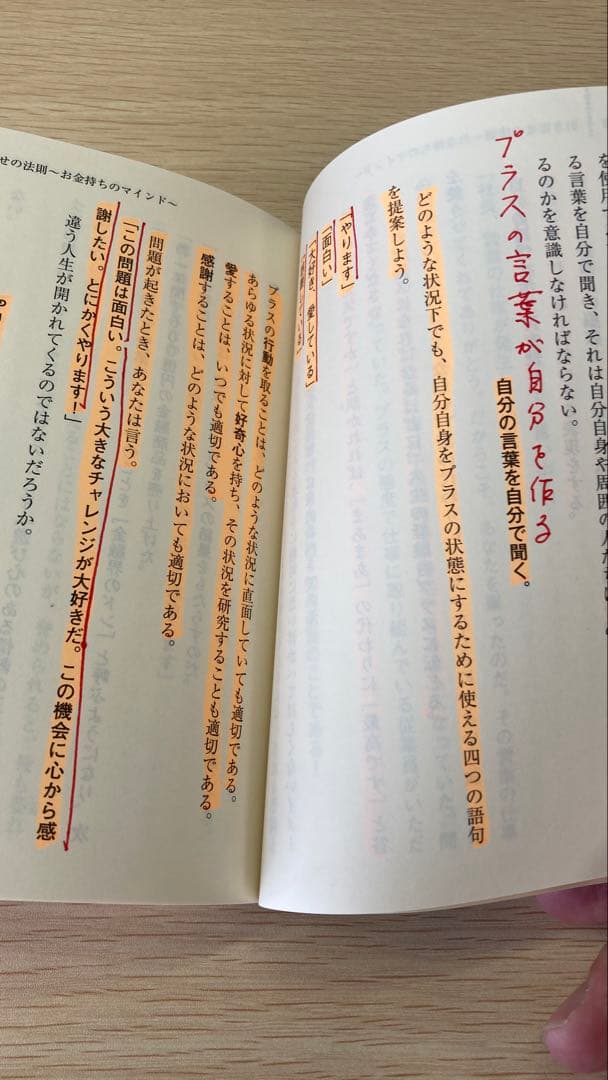 を使用
る言葉を自分で聞き、それは自分自身や周囲の人
るのかを意識しなければならない。
自分の言葉を自分で聞く。
プラスの言葉が自分を作る
どのような状況下でも、自分自身をプラスの状態にするために使える四つの語句
を提案しよう。
「やります」
「面白い」
「大好き、愛している」
ている」
せの法則〜お金持ちのマインド〜
プラスの行動を取ることは、どのような状況に直面していても適切である。
あらゆる状況に対して好奇心を持ち、その状況を研究することも適切である。
愛することは、いつでも適切である。
感謝することは、どのような状況においても適切である。
問題が起きたとき、あなたは言う。
「この問題は面白い。こういう大きなチャレンジが大好きだ。この機会に心から感
謝したい。とにかくやります!」
違う人生が開かれてくるのではないだろうか。